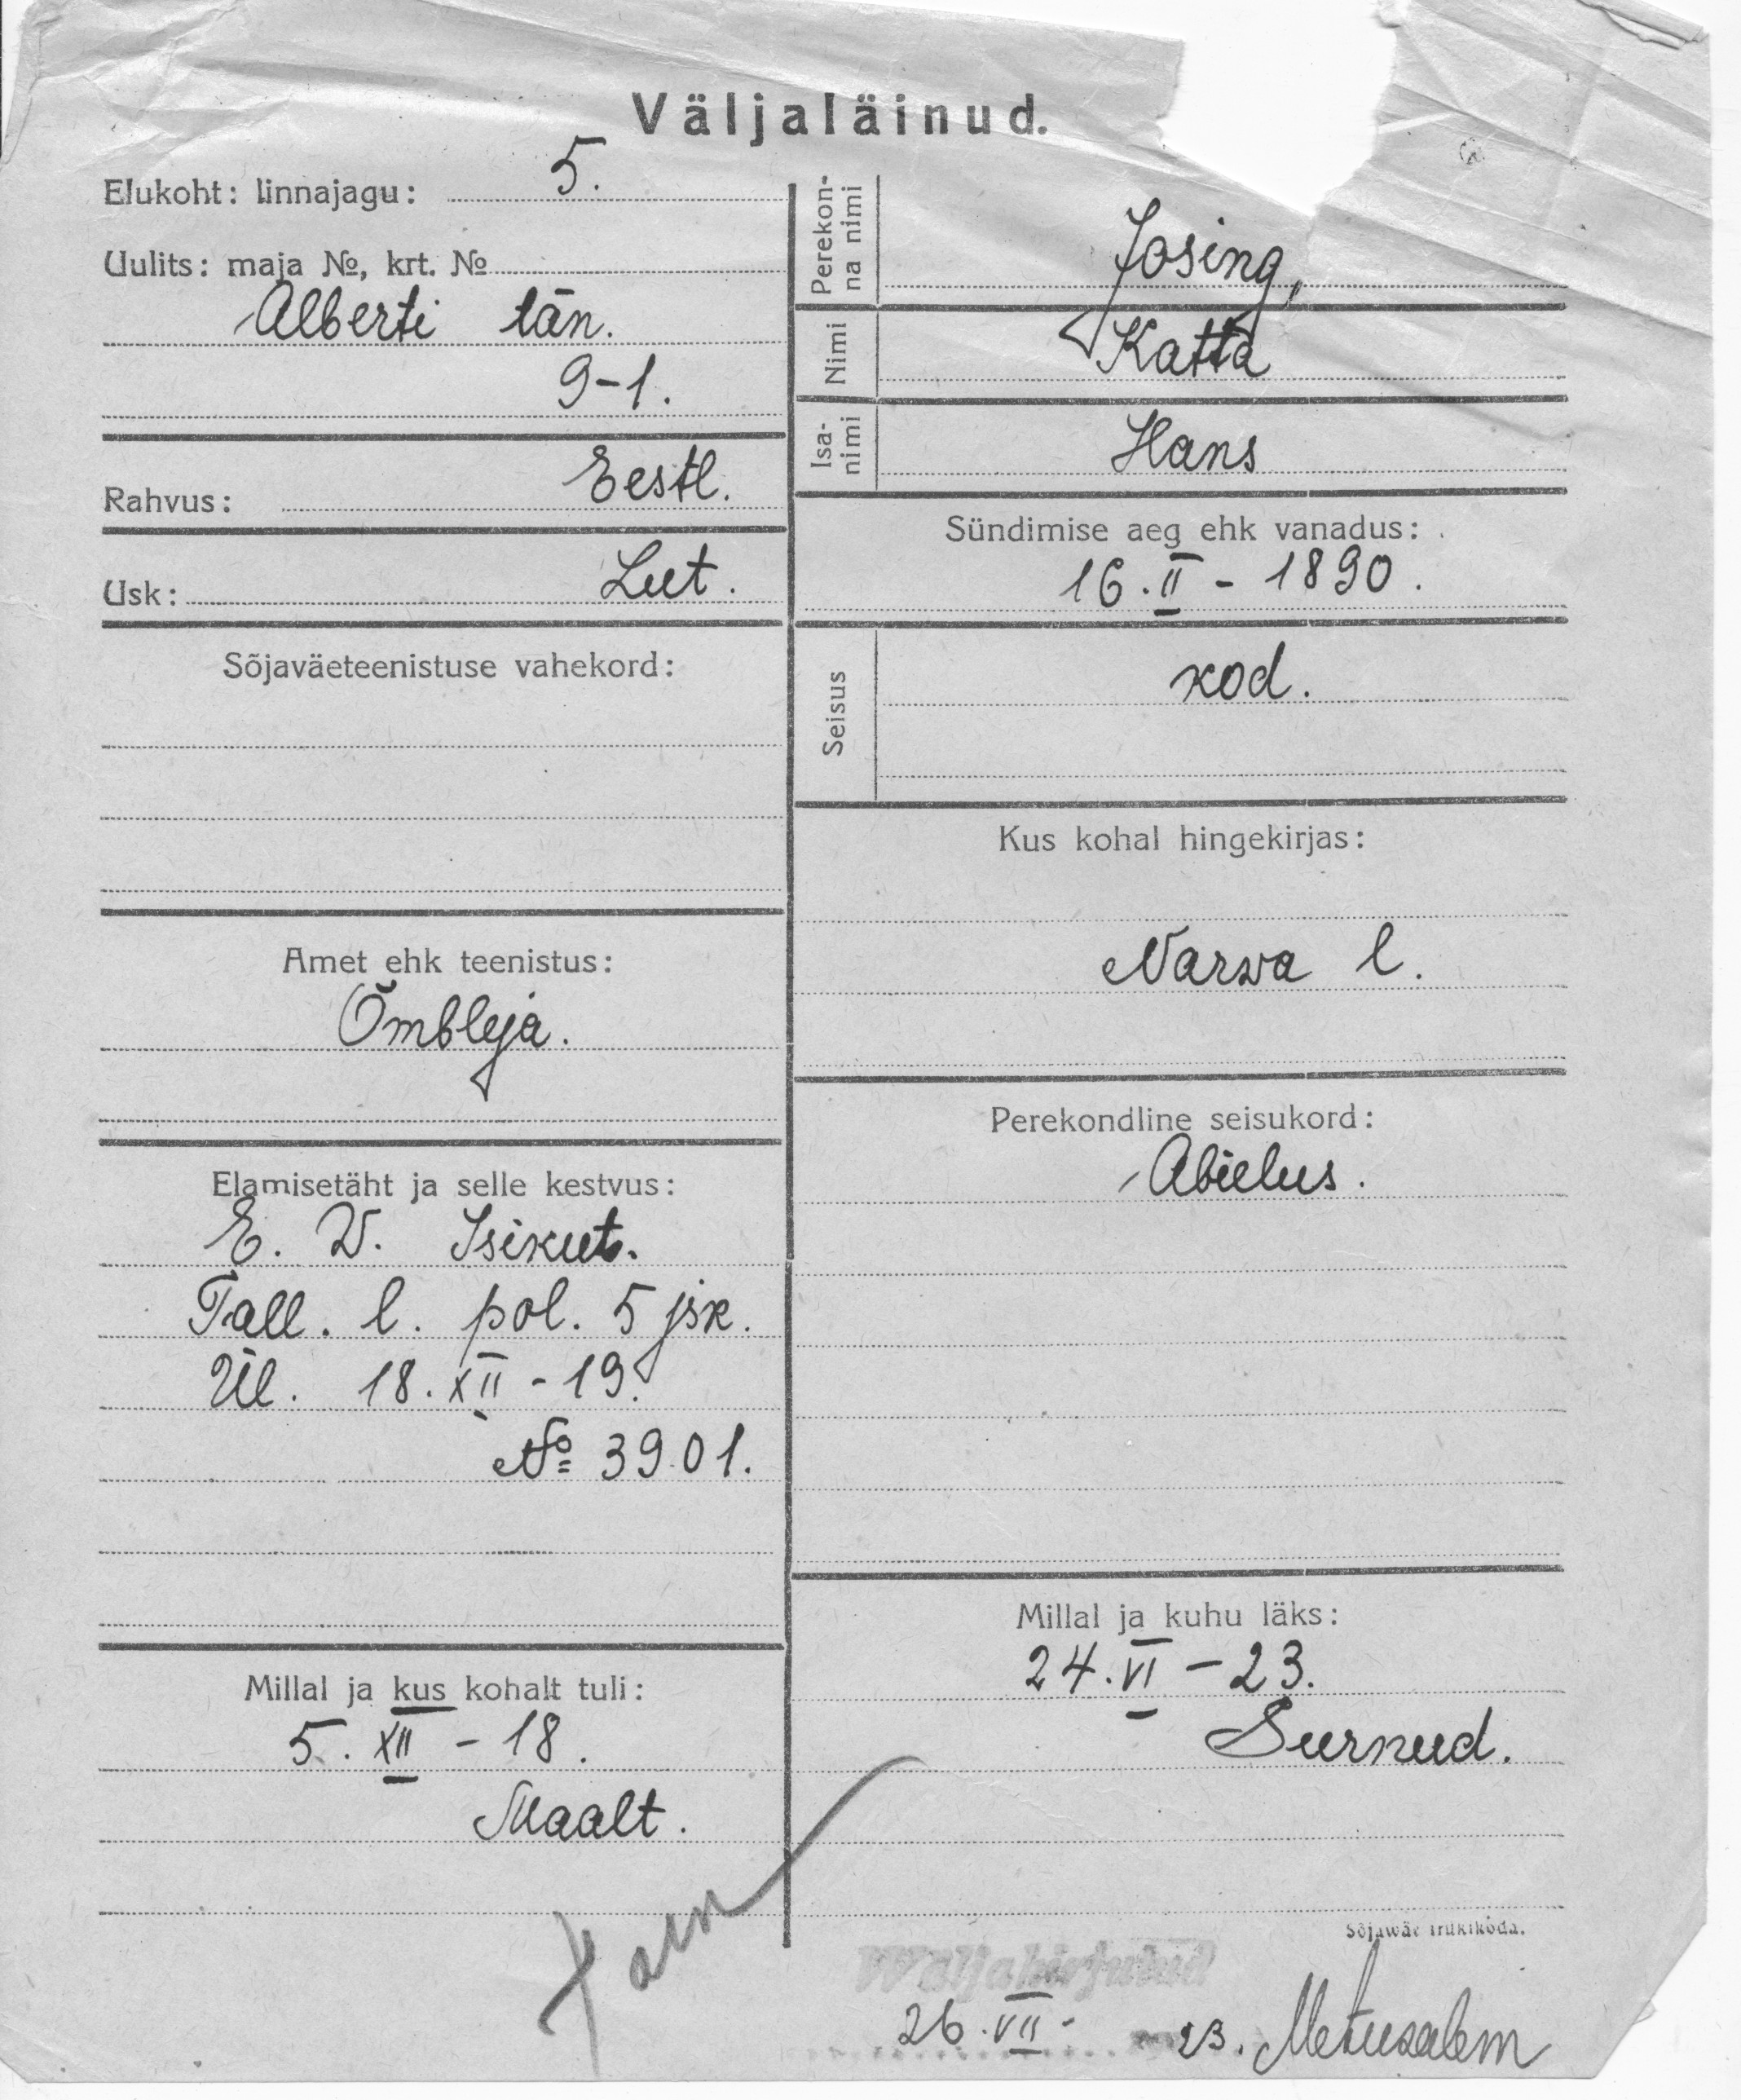 Väljaläinud.
Elukoht: linnajagu: 5.
Uulits: maja №, krt. №
Alberti tän.
9-1.
Rahvus: Eestl.
Usk: Lut.
Sõjaväeteenistuse vahekord:
Amet ehk teenistus:
Õmbleja.
Elamisetäht ja selle kestvus:
E. W. Isikut.
Tall. l. pol. 5 jsk.
Ül. 18. XII - 19.
№ 3901.
Millal ja kus kohalt tuli:
5. XII - 18.
Maalt.
Perekon-
na nimi
Josing,
Nimi
Katta
Isa-
nimi
Hans
Sündimise aeg ehk vanadus:
16. II - 1890.
Seisus
kod.
Kus kohal hingekirjas:
Narwa l.
Perekondline seisukord:
Abielus.
Millal ja kuhu läks:
24. VI - 23.
Surnud.
Sõjawäe trükikoda.
Wäljakirjutud
26. VII - 23.